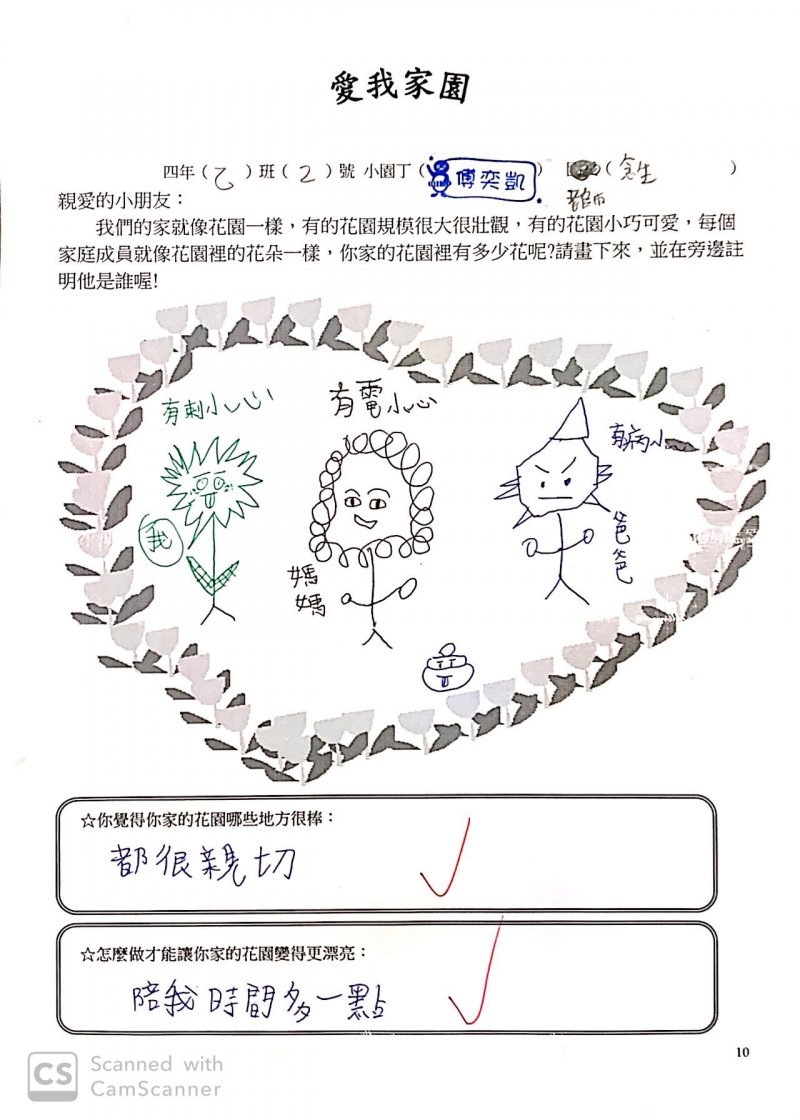 愛我家園
四年(乙)班(2)號 小園丁(傅奕凱) (
親愛的小朋友：
我們的家就像花園一樣，有的花園規模很大很壯觀，有的花園小巧可愛，每個
家庭成員就像花園裡的花朵一樣，你家的花園裡有多少花呢?請畫下來，並在旁邊註
明他是誰喔!
有刺小心
有電小心
有病小心
我
媽媽
爸爸
☆你覺得你家的花園哪些地方很棒：
都很親切
☆怎麼做才能讓你家的花園變得更漂亮：
陪我時間多一點
10
CS Scanned with
CamScanner